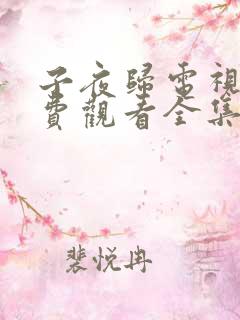 子夜歸電視
費觀看全集
裴悅冉